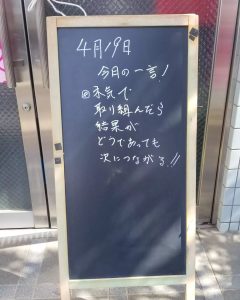 4月19日
今日の一言!
◎本気で
取り組んだら
結果が
どうであっても
次につながる!!